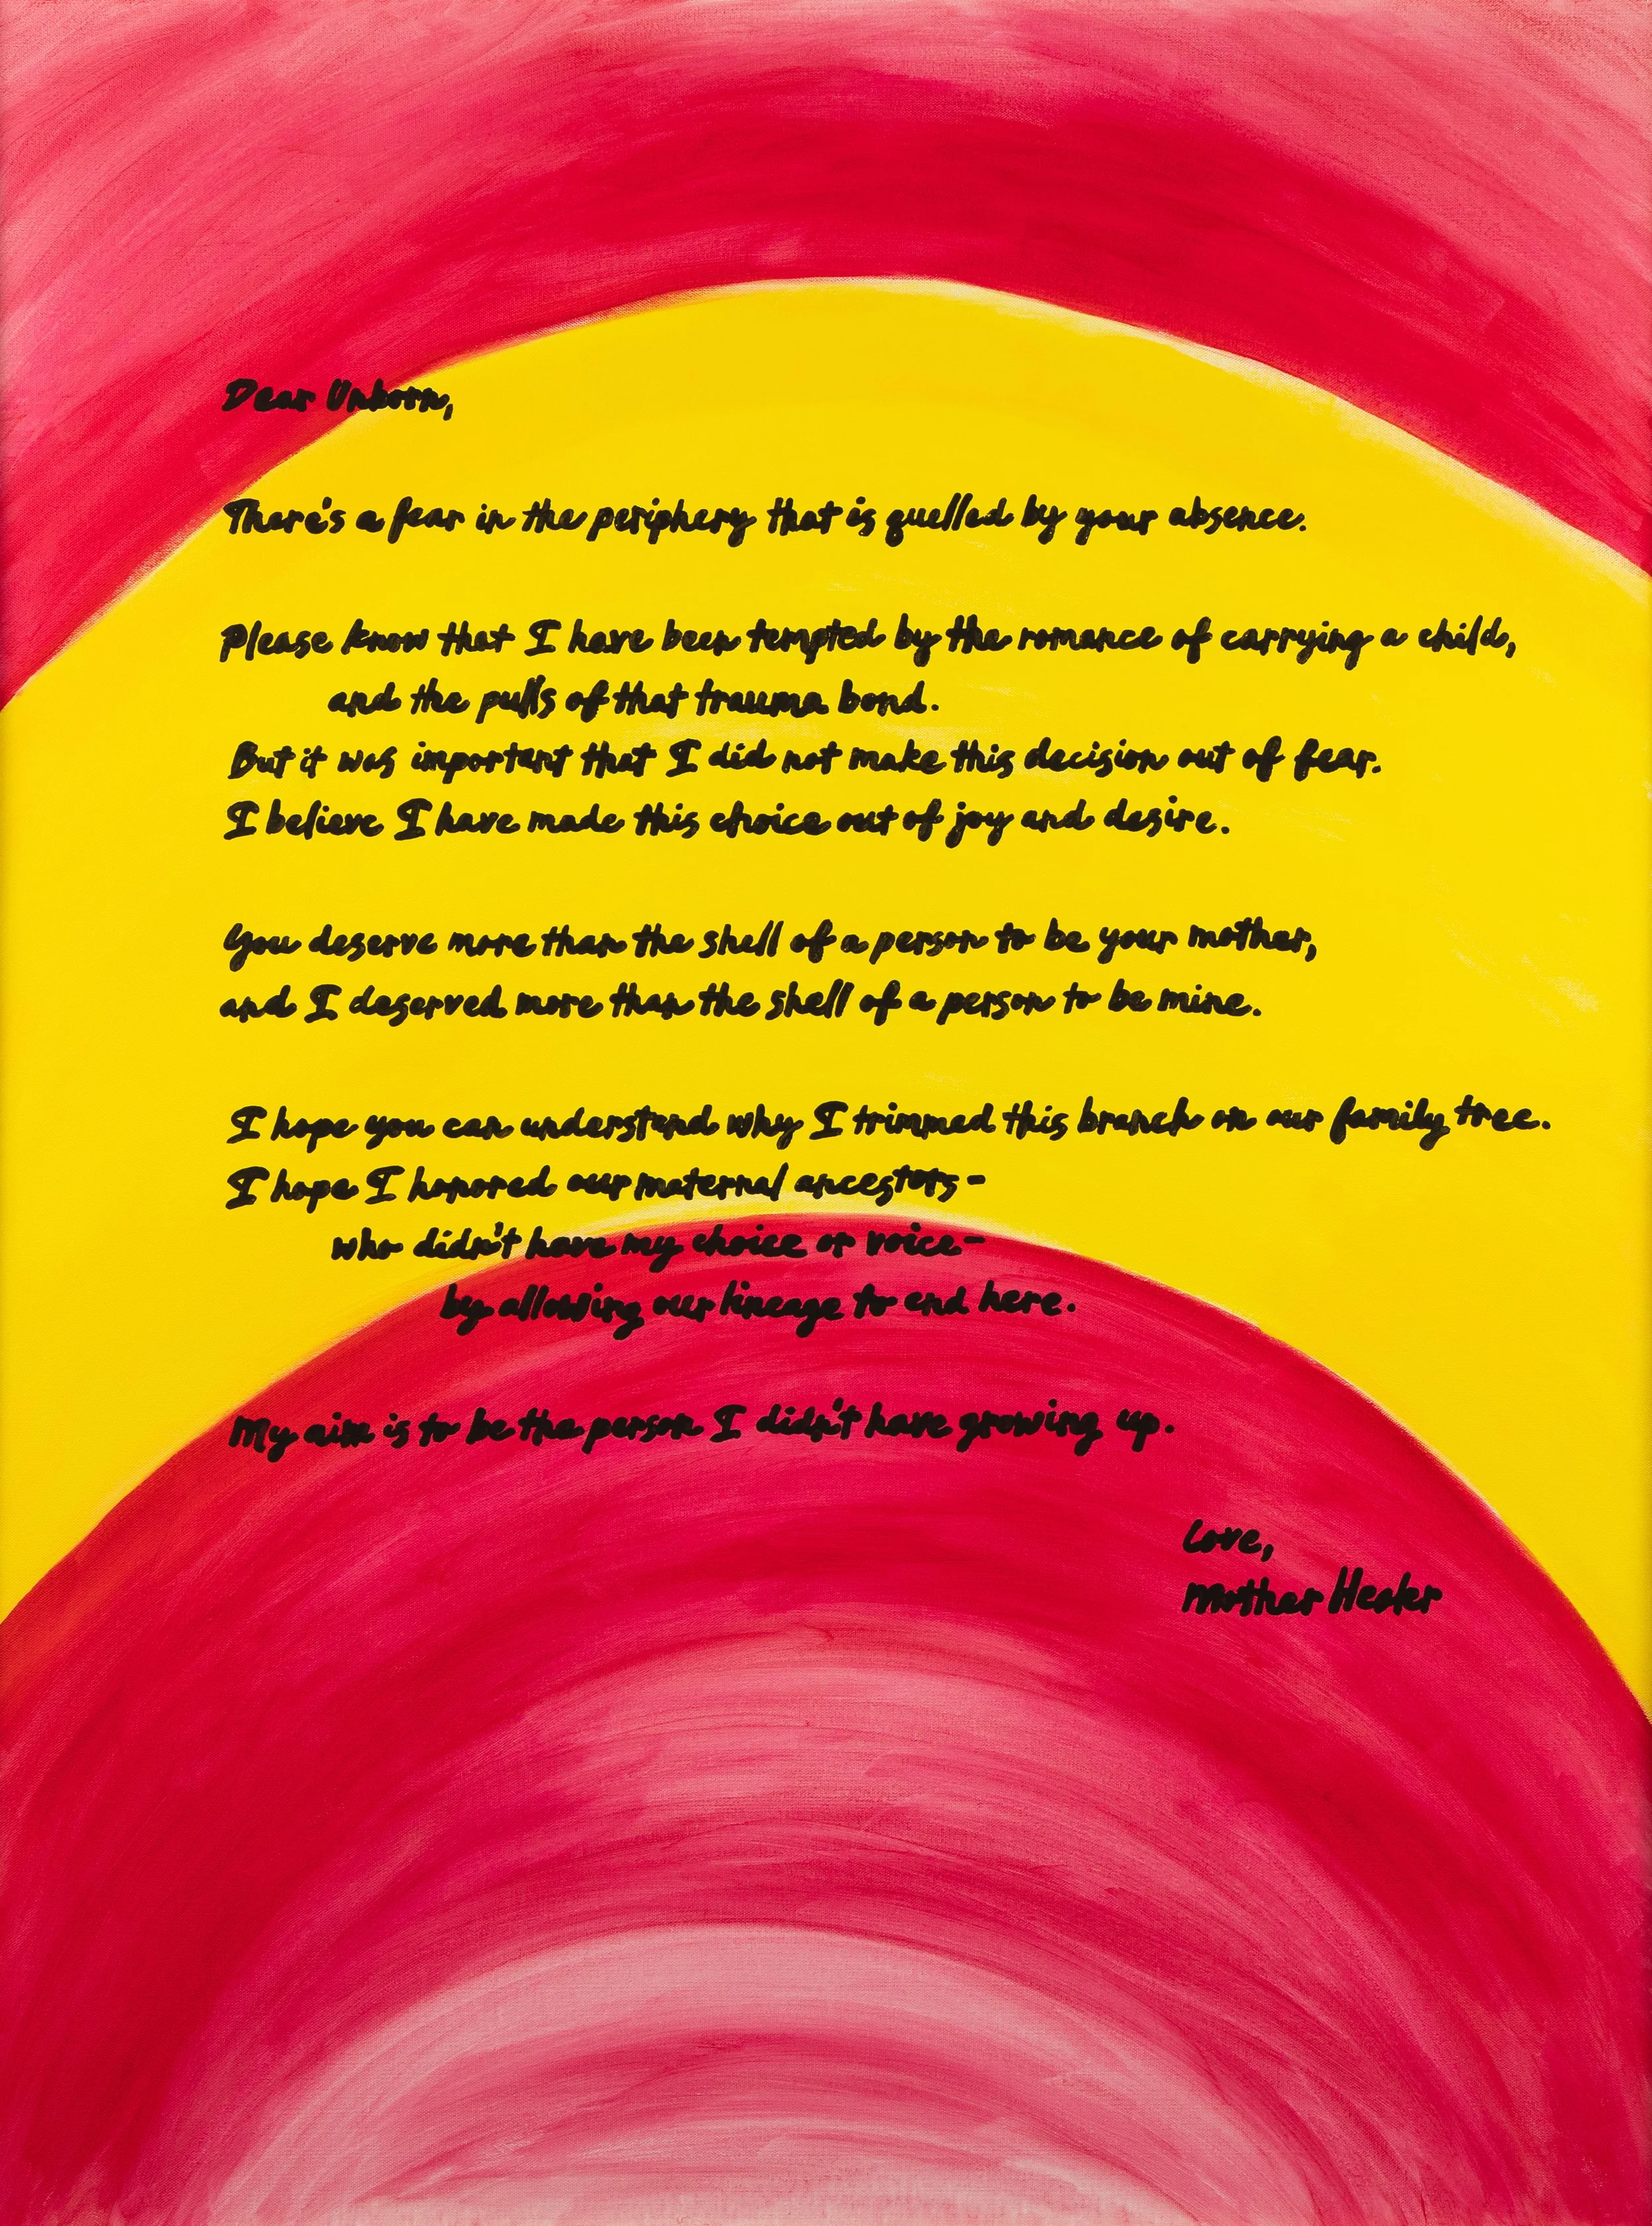 Dear Unborn,
There's a fear in the periphery that is quelled by your absence.
Please know that I have been tempted by the romance of carrying a child,
and the pulls of that trauma bond.
But it was important that I did not make this decision out of fear.
I believe I have made this choice out of joy and desire.
You deserve more than the shell of a person to be your mother,
and I deserved more than the shell of a person to be mine.
I hope you can understand why I trimmed this branch on our family tree.
I hope I honored our maternal ancestors-
who didn't have my choice or voice-
by allowing our lineage to end here.
My aim is to be the person I didn't have growing up.
Love,
Mother Healer